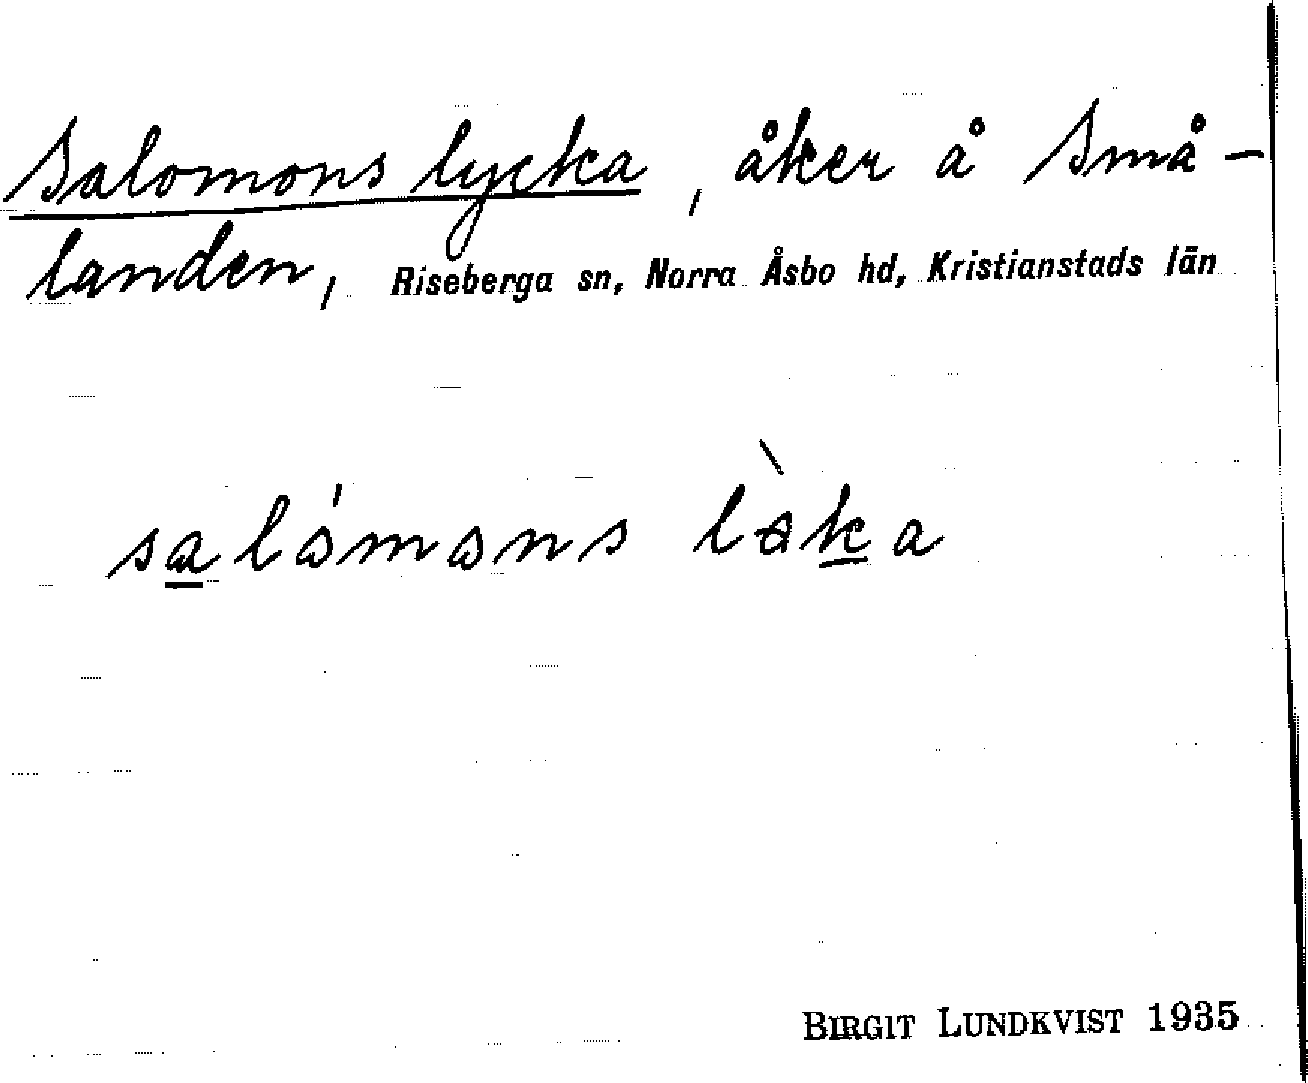 Salomons lycka, åker å Små-
landen, Riseberga sn, Norra Åsbo hd, Kristianstads län
BIRGIT LUNDKVIST 1935